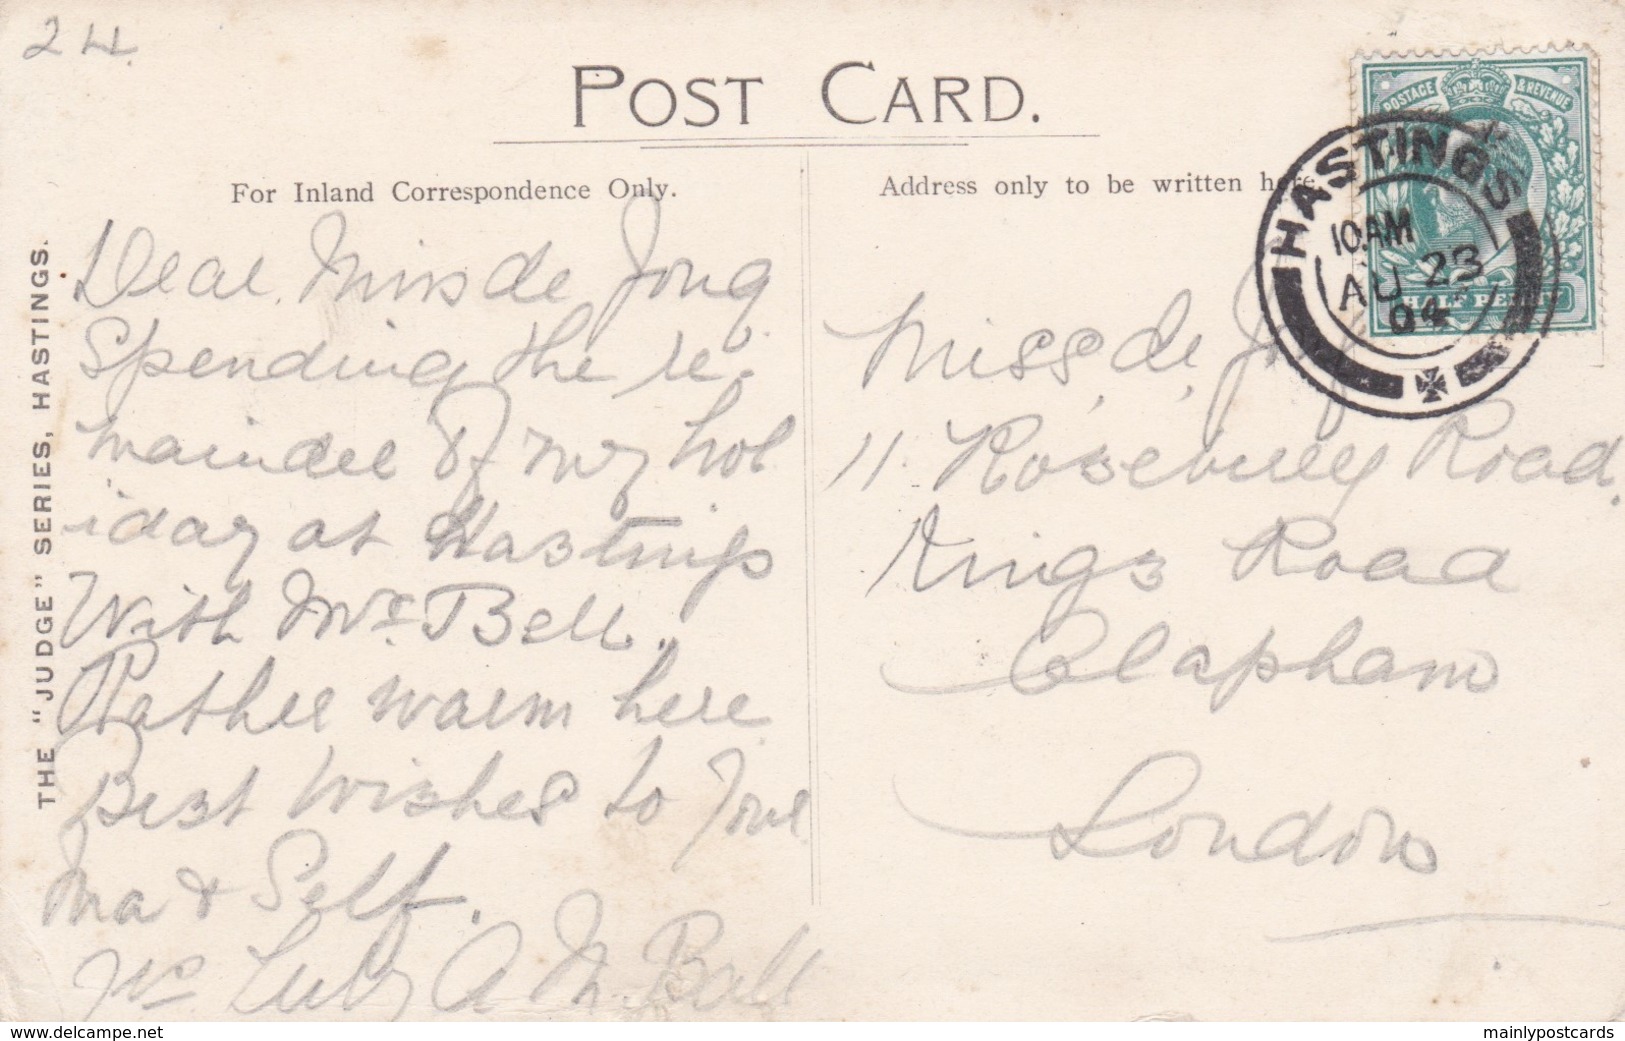 24
POST CARD.
For Inland Correspondence Only.
Address only to be written here.
THE "JUDGE" SERIES, HASTINGS.
POSTAGE & REVENUE
HALF PENNY
HASTINGS
10.AM
AU 23
04
Dear Miss de Jong
Spending the re-
mainder of my hol
iday at Hastings
With Mrs Bell.
Rather warm here
Best Wishes to Your
Ma & Self.
Yrs A M Ball
Miss de Jong
11. Rosebury Road.
Kings Road
Clapham
London
www.delcampe.net
mainlypostcards